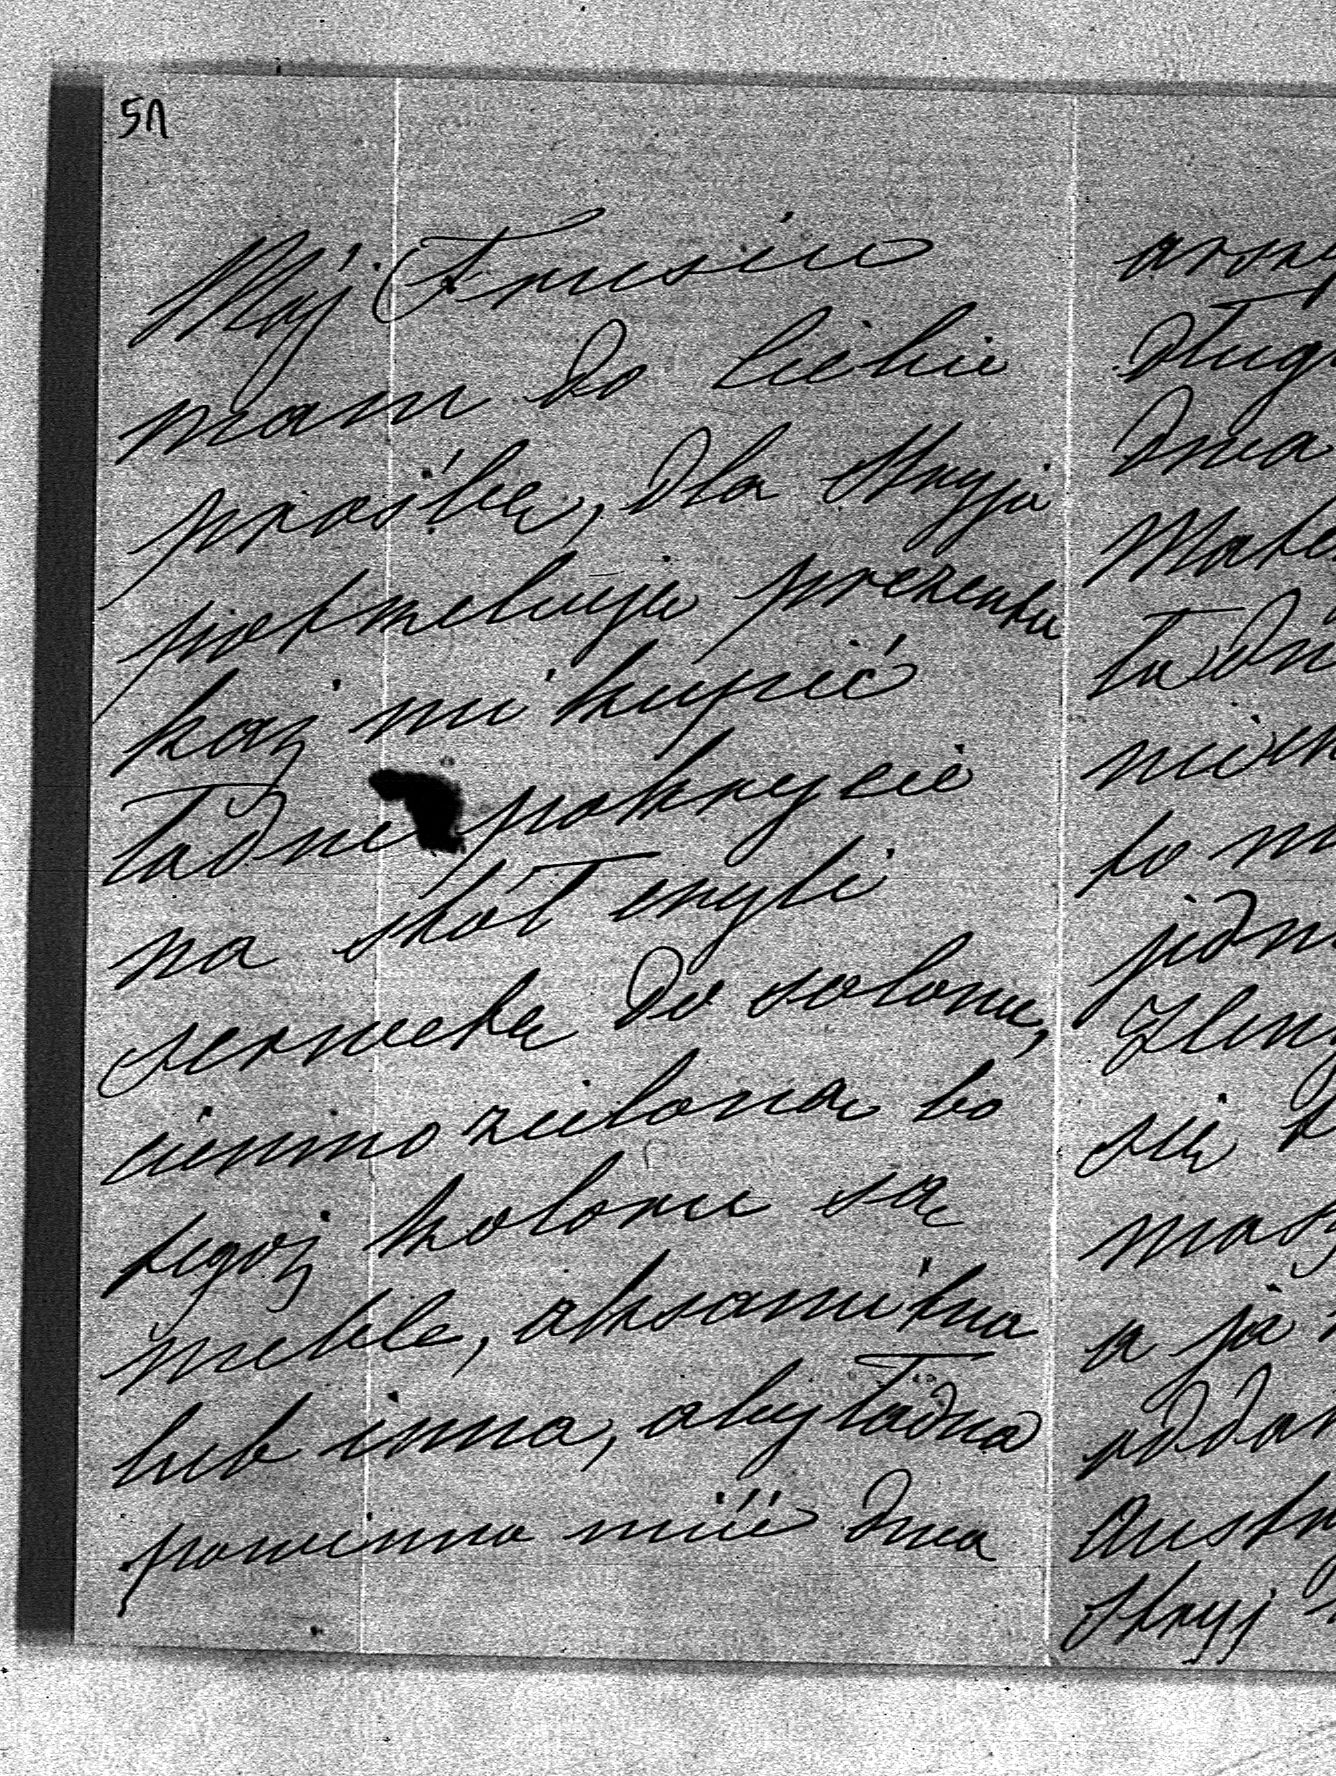 51
Mój Franusiu
mam do Ciebie
prośbę, dla Stryja
potrzebuję prezentu
każ mi kupić
ładne pokrycie
na stół czyli
serwetę do salonu,
ciemno zieloną bo
tegoż koloru są
meble, aksamitna
lub inna, aby ładna
powinna mieć dwa
arszy
dług
dwa
Mate
ładn
to
jedn
się
masz
a ja
oddam
Austr
Stryj